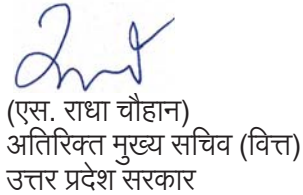 (एस. राधा चौहान)
अतिरिक्त मुख्य सचिव (वित्त)
उत्तर प्रदेश सरकार